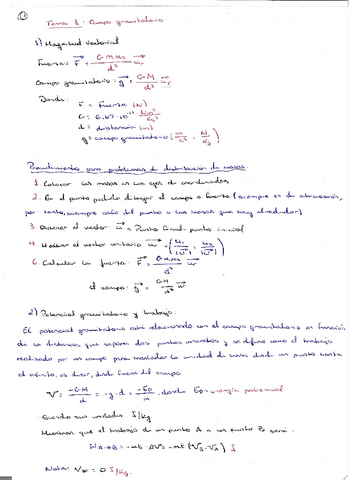 Tema 1: Campo gravitatorio
1) Magnitud vectorial
Fuerza: F = G·M·m/d² u_r
Campo gravitatorio: g = G·M/d² u_r
Donde:
F = Fuerza (N)
G = 6.67·10⁻¹¹ N·m²/Kg²
d = distancia (m)
g = campo gravitatorio (m/s², N/Kg)
Procedimientos para problemas de distribución de masas:
1. Colocar las masas en un eje de coordenadas
2. En el punto pedido dibujar el campo o fuerza (siempre es de atracción,
por tanto, siempre sale del punto a las masas que hay alrededor)
3. Obtener el vector u = Punto final - punto inicial
4. Hallar el vector unitario
6. Calcular la fuerza: F = G·M·m/d²
el campo: g = G·M/d²
2) Potencial gravitatorio y trabajo:
El potencial gravitatorio está relacionado con el campo gravitatorio en función
de la distancia que separa dos puntos concretos y se define como el trabajo
realizado por un campo para trasladar la unidad de masa desde un punto hasta
el infinito, es decir, desde fuera del campo.
V = -G·M/d = -g·d = Ep/m, donde Ep = energía potencial
Siendo sus unidades J/Kg
Mientras que el trabajo de un punto A a un punto B será:
W A→B = -m·ΔV = -m·(V_B - V_A) J
Nota: V∞ = 0 J/Kg.